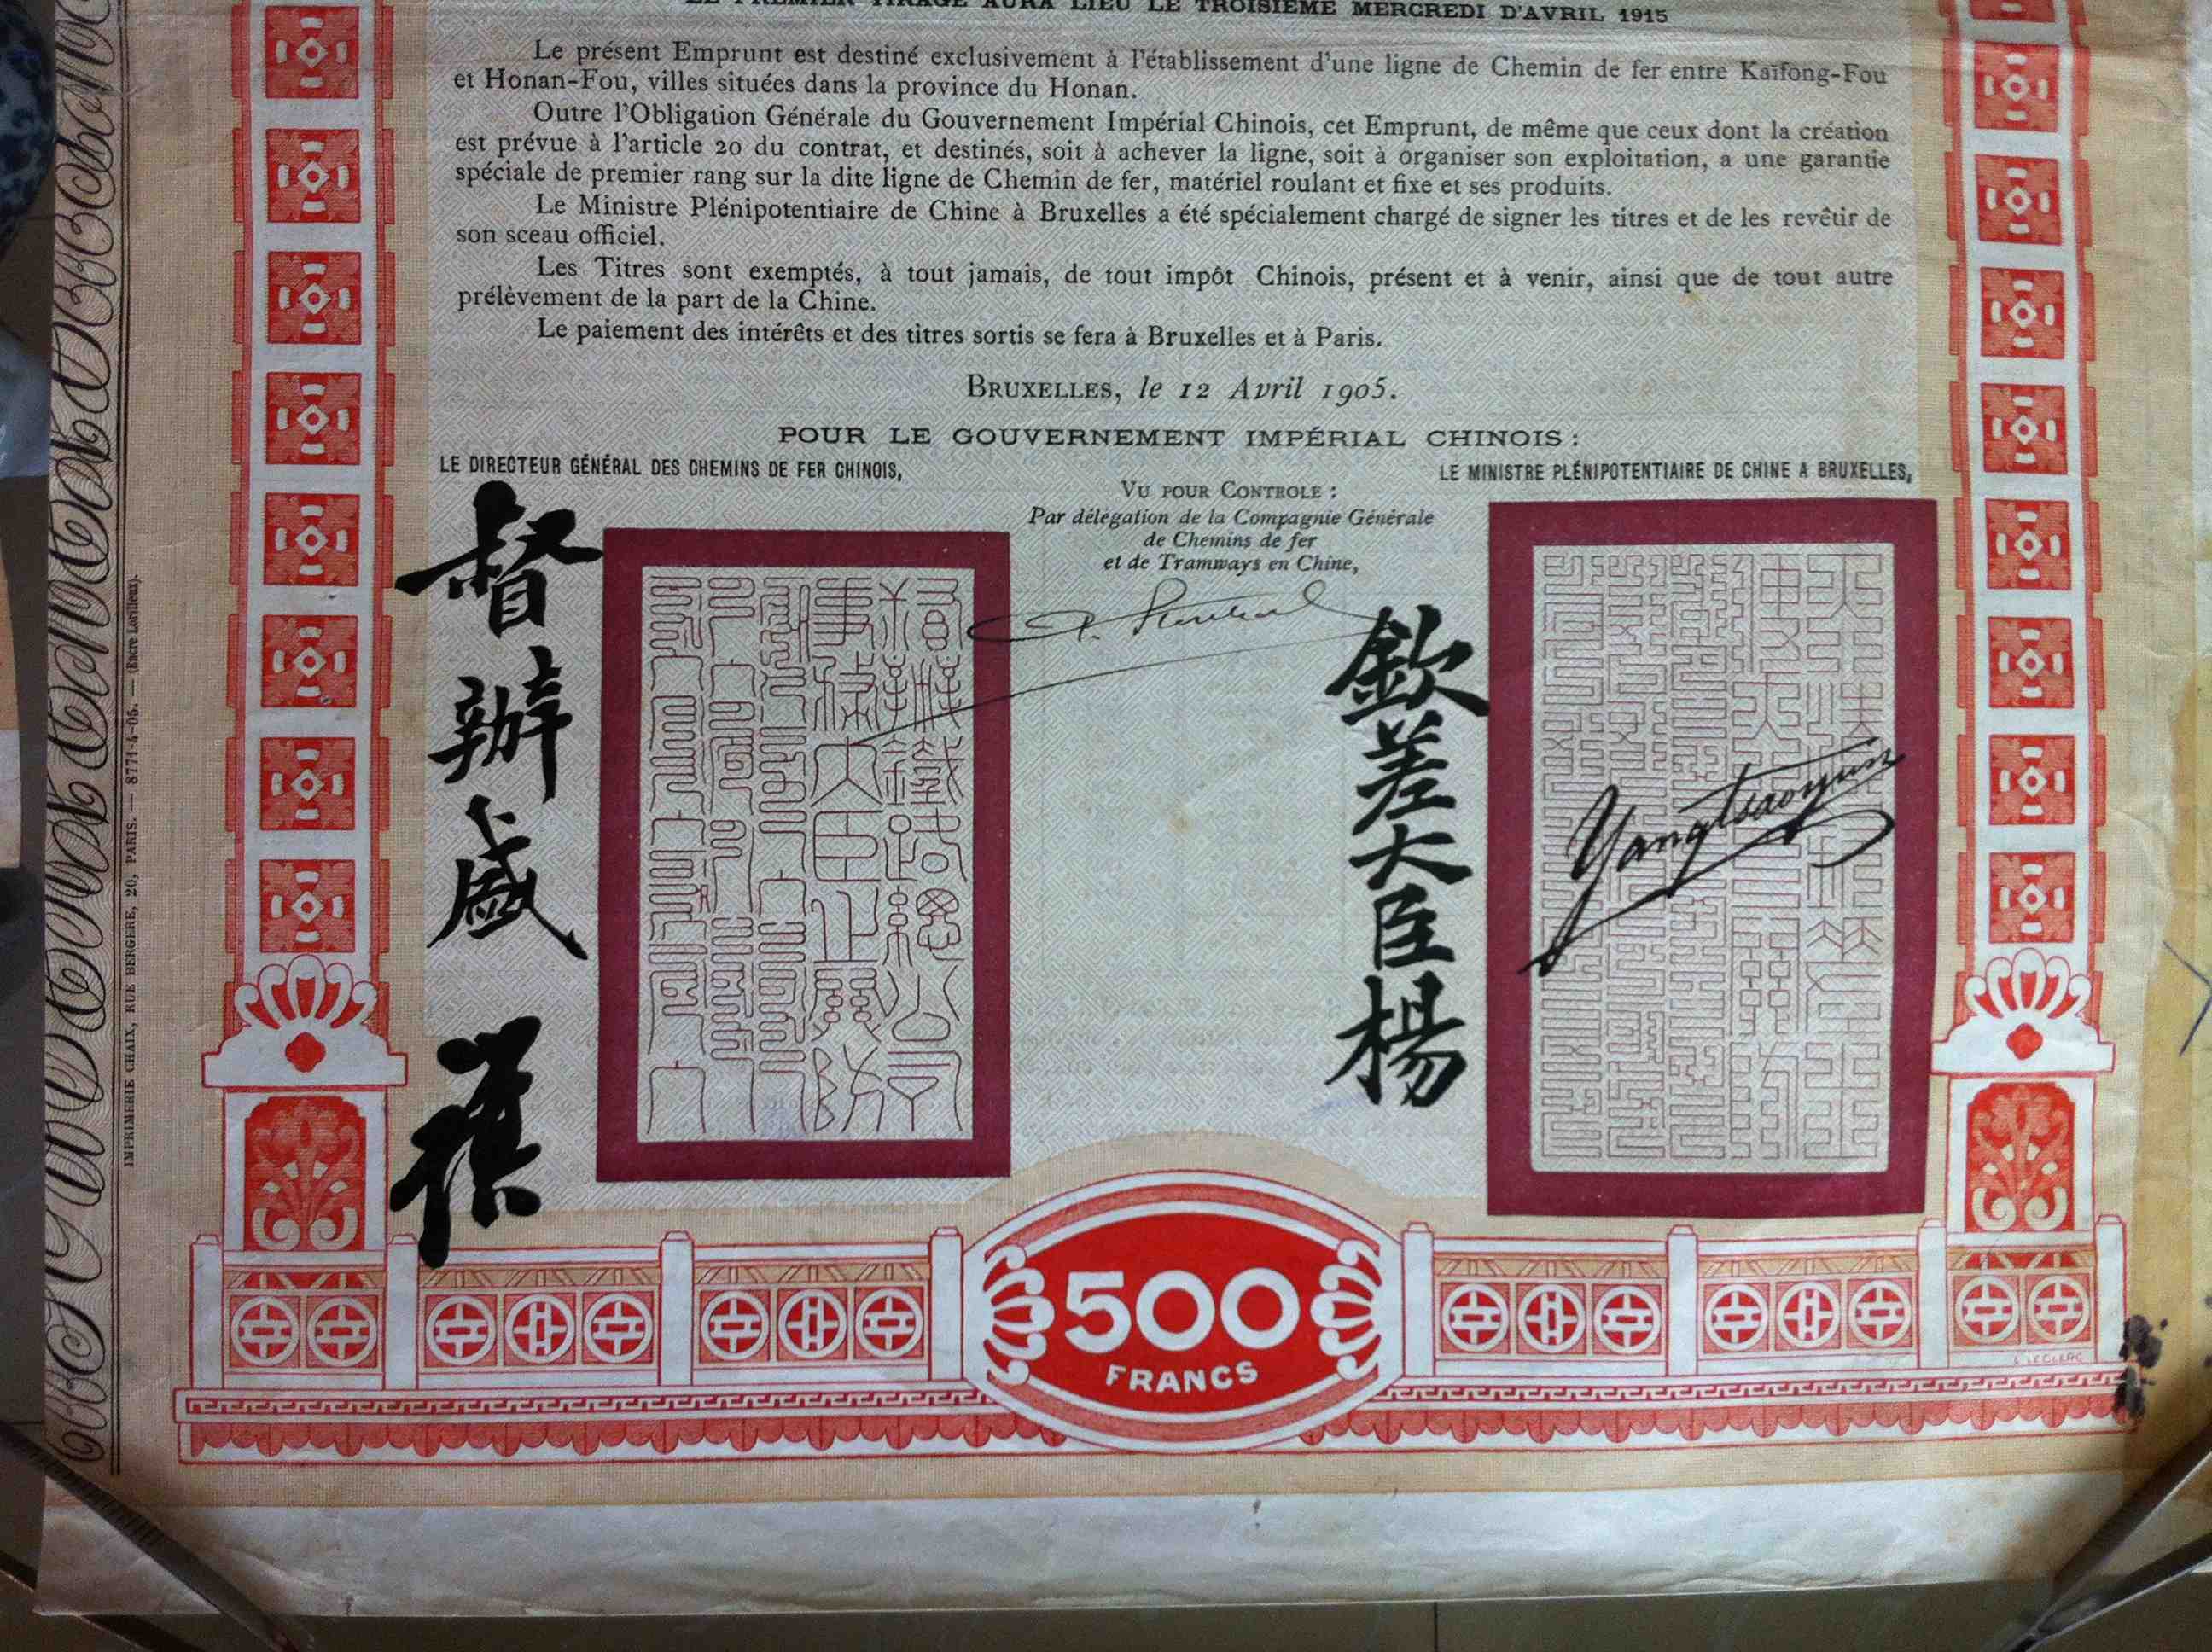 LE PREMIER TIRAGE AURA LIEU LE TROISIÈME MERCREDI D'AVRIL 1915
Le présent Emprunt est destiné exclusivement à l'établissement d'une ligne de Chemin de fer entre Kaïfong-Fou
et Honan-Fou, villes situées dans la province du Honan.
Outre l'Obligation Générale du Gouvernement Impérial Chinois, cet Emprunt, de même que ceux dont la création
est prévue à l'article 20 du contrat, et destinés, soit à achever la ligne, soit à organiser son exploitation, a une garantie
spéciale de premier rang sur la dite ligne de Chemin de fer, matériel roulant et fixe et ses produits.
Le Ministre Plénipotentiaire de Chine à Bruxelles a été spécialement chargé de signer les titres et de les revêtir de
son sceau officiel.
Les Titres sont exemptés, à tout jamais, de tout impôt Chinois, présent et à venir, ainsi que de tout autre
prélèvement de la part de la Chine.
Le paiement des intérêts et des titres sortis se fera à Bruxelles et à Paris.
BRUXELLES, le 12 Avril 1905.
POUR LE GOUVERNEMENT IMPÉRIAL CHINOIS :
LE DIRECTEUR GÉNÉRAL DES CHEMINS DE FER CHINOIS,
LE MINISTRE PLÉNIPOTENTIAIRE DE CHINE A BRUXELLES,
VU POUR CONTROLE :
Par délégation de la Compagnie Générale
de Chemins de fer
et de Tramways en Chine,
督辦盛
欽差大臣楊
Yangtsaoyun
500
FRANCS
L. LECLERC
IMPRIMERIE CHAIX, RUE BERGÈRE, 20, PARIS. — 8771-4-05. — (Encre Lorilleux).